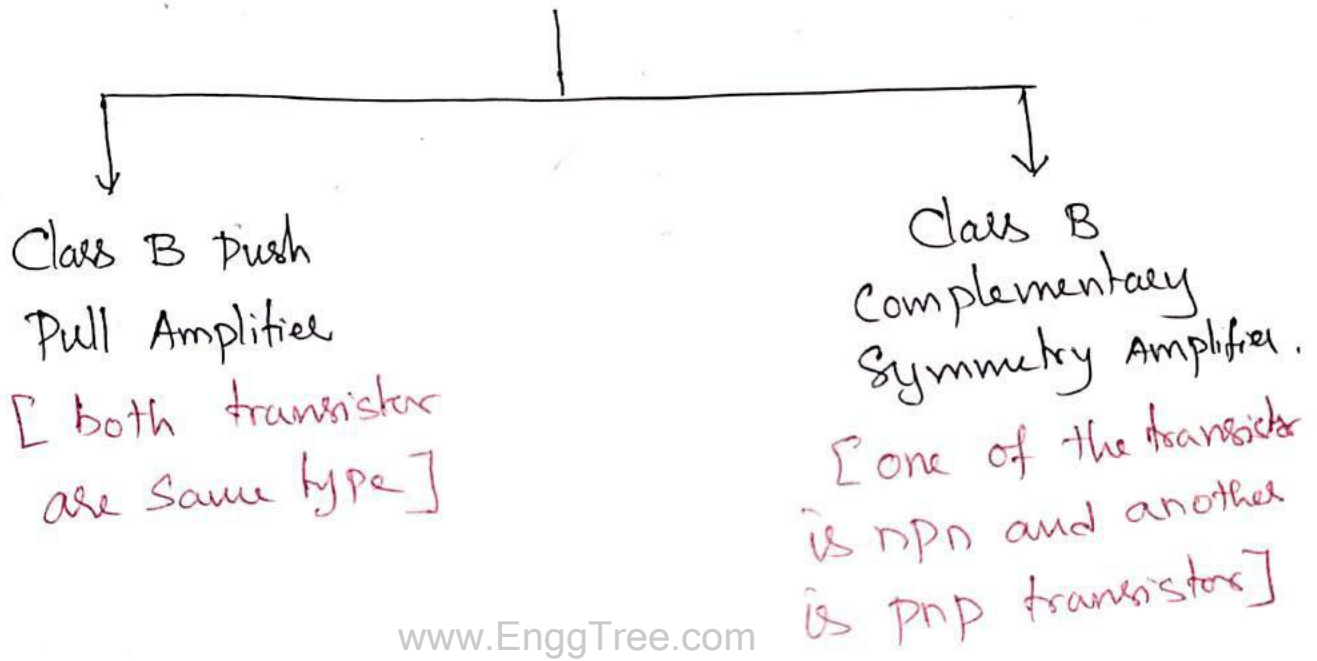 Class B Push
Pull Amplifier
[ both transistor
are same type ]
Class B
Complementary
Symmetry Amplifier.
[ one of the transistor
is npn and another
is pnp transistor ]
www.EnggTree.com